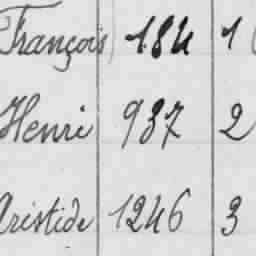 François 184 1
Henri 937 2
Aristide 1246 3